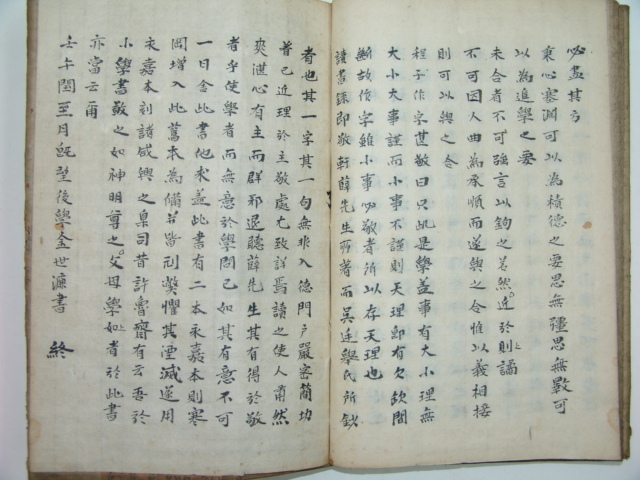 必盡其方
秉心塞淵可以爲積德之要思無疆思無斁可
以爲進學之要
未合者不可強言以鉤之若然近於則譎
不可因人曲爲承順而遂與之合惟以義相接
則可以與之合
程子作字甚敬曰只此是學蓋事有大小理無
大小大事謹而小事不謹則天理卽有欠缺間
斷故作字雖小事必敬者所以存天理也
讀書錄卽敬軒薛先生所著而吳廷擧氏所鈔
者也其一字其一句無非入德門戶嚴密簡切
普已近理於主敬處尤致詳焉讀之使人肅然
爽湛心有主而群邪退聽薛先生其有得於敬
者乎使學者而無意於學問已如其有意不可
一日舍此書他求盖此書有二本永嘉本則寒
岡增入此舊本爲備幷皆刓弊懼其湮滅遂用
永嘉本刻諸咸興之臬司昔許魯齋有云吾於
小學書敬之如神明尊之父母學如者於此書
亦當云爾
壬午閏至月旣望後學金世濂書 終